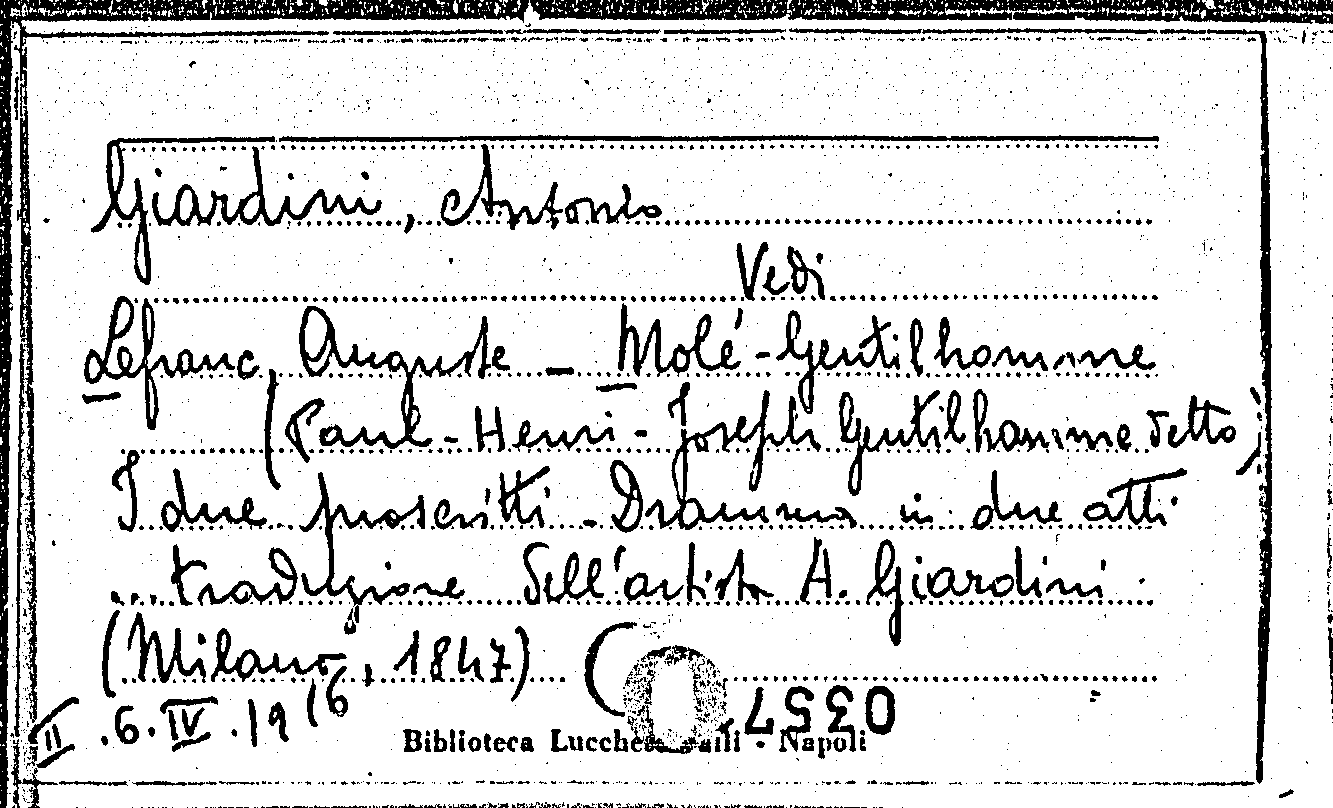 Giardini, Antonio
Vedi
Lefranc, Auguste - Molé-Gentilhomme
(Paul-Henri-Joseph Gentilhomme detto)
I due proscritti - Dramma in due atti
... traduzione dell'artista A. Giardini.
(Milano, 1847) (
II.6.IV.19 (6
0357
Biblioteca Lucchesi Palli - Napoli